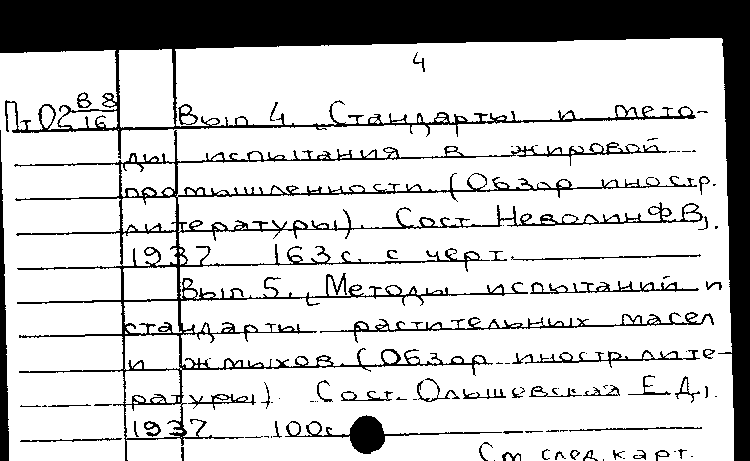 4
Пт02 В 8/16 Вып. 4. [Стандарты и мето-
ды испытания в жировой
промышленности. (Обзор иностр.
литературы). Сост. Неволин Ф.В.,
1937. 163 с. с черт.
Вып. 5. [Методы испытаний и
стандарты растительных масел
и жмыхов. (Обзор иностр. лите-
ратуры). Сост. Ольшевская Е.Д.,
1937. 100с.
См. след. карт.